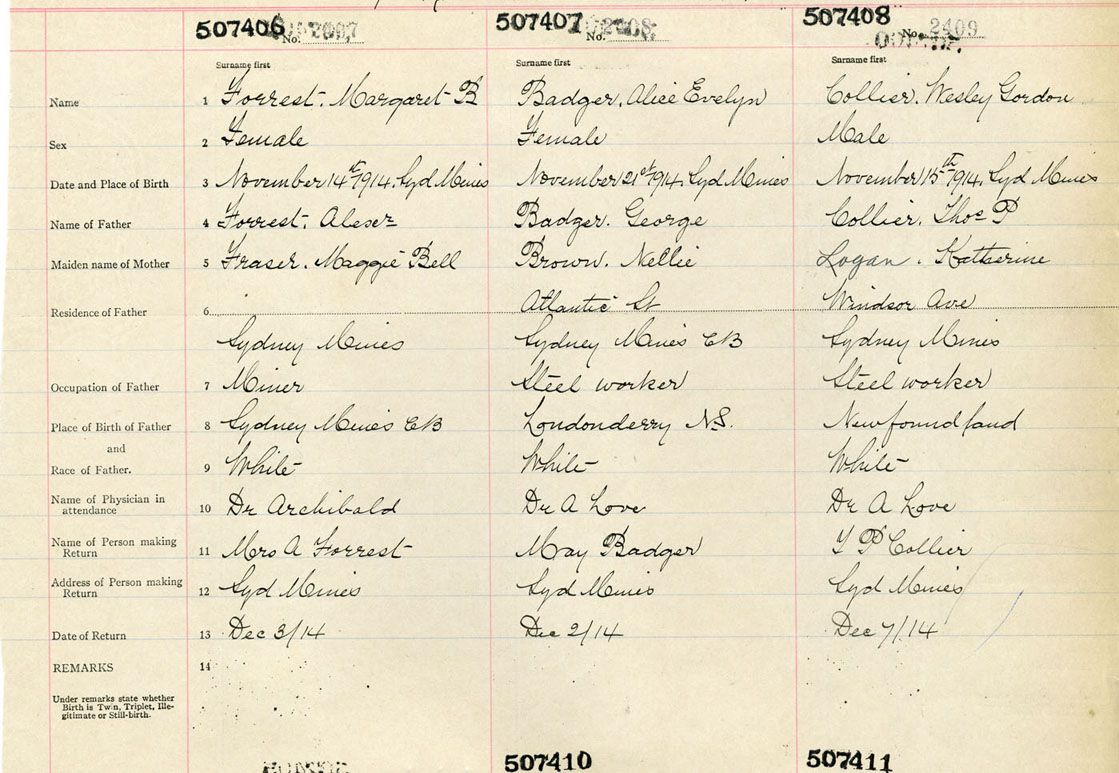 507406 507407 507408
No. 2407 No. 2408 No. 2409
Surname first Surname first Surname first
Name 1 Forrest. Margaret B Badger, Alice Evelyn Collier, Wesley Gordon
Sex 2 Female Female Male
Date and Place of Birth 3 November 14th 1914. Syd Mines November 21st 1914. Syd Mines November 15th 1914, Syd Mines
Name of Father 4 Forrest. Badger. George Collier. Thos P
Maiden name of Mother 5 Fraser. Maggie Bell Brown. Nellie Logan. Katherine
Residence of Father 6 Atlantic St Windsor Ave
Sydney Mines Sydney Mines CB Sydney Mines
Occupation of Father 7 Miner Steel worker Steel worker
Place of Birth of Father 8 Sydney Mines CB Londonderry NS. Newfoundland
and
Race of Father. 9 White White White
Name of Physician in
attendance 10 Dr Archibald Dr A Love Dr A Love
Name of Person making
Return 11 Mrs A Forrest May Badger P Collier
Address of Person making
Return 12 Syd Mines Syd Mines Syd Mines
Date of Return 13 Dec 3/14 Dec 2/14 Dec 7/14
REMARKS 14
Under remarks state whether
Birth is Twin, Triplet, Ille-
gitimate or Still-birth.
507410 507411